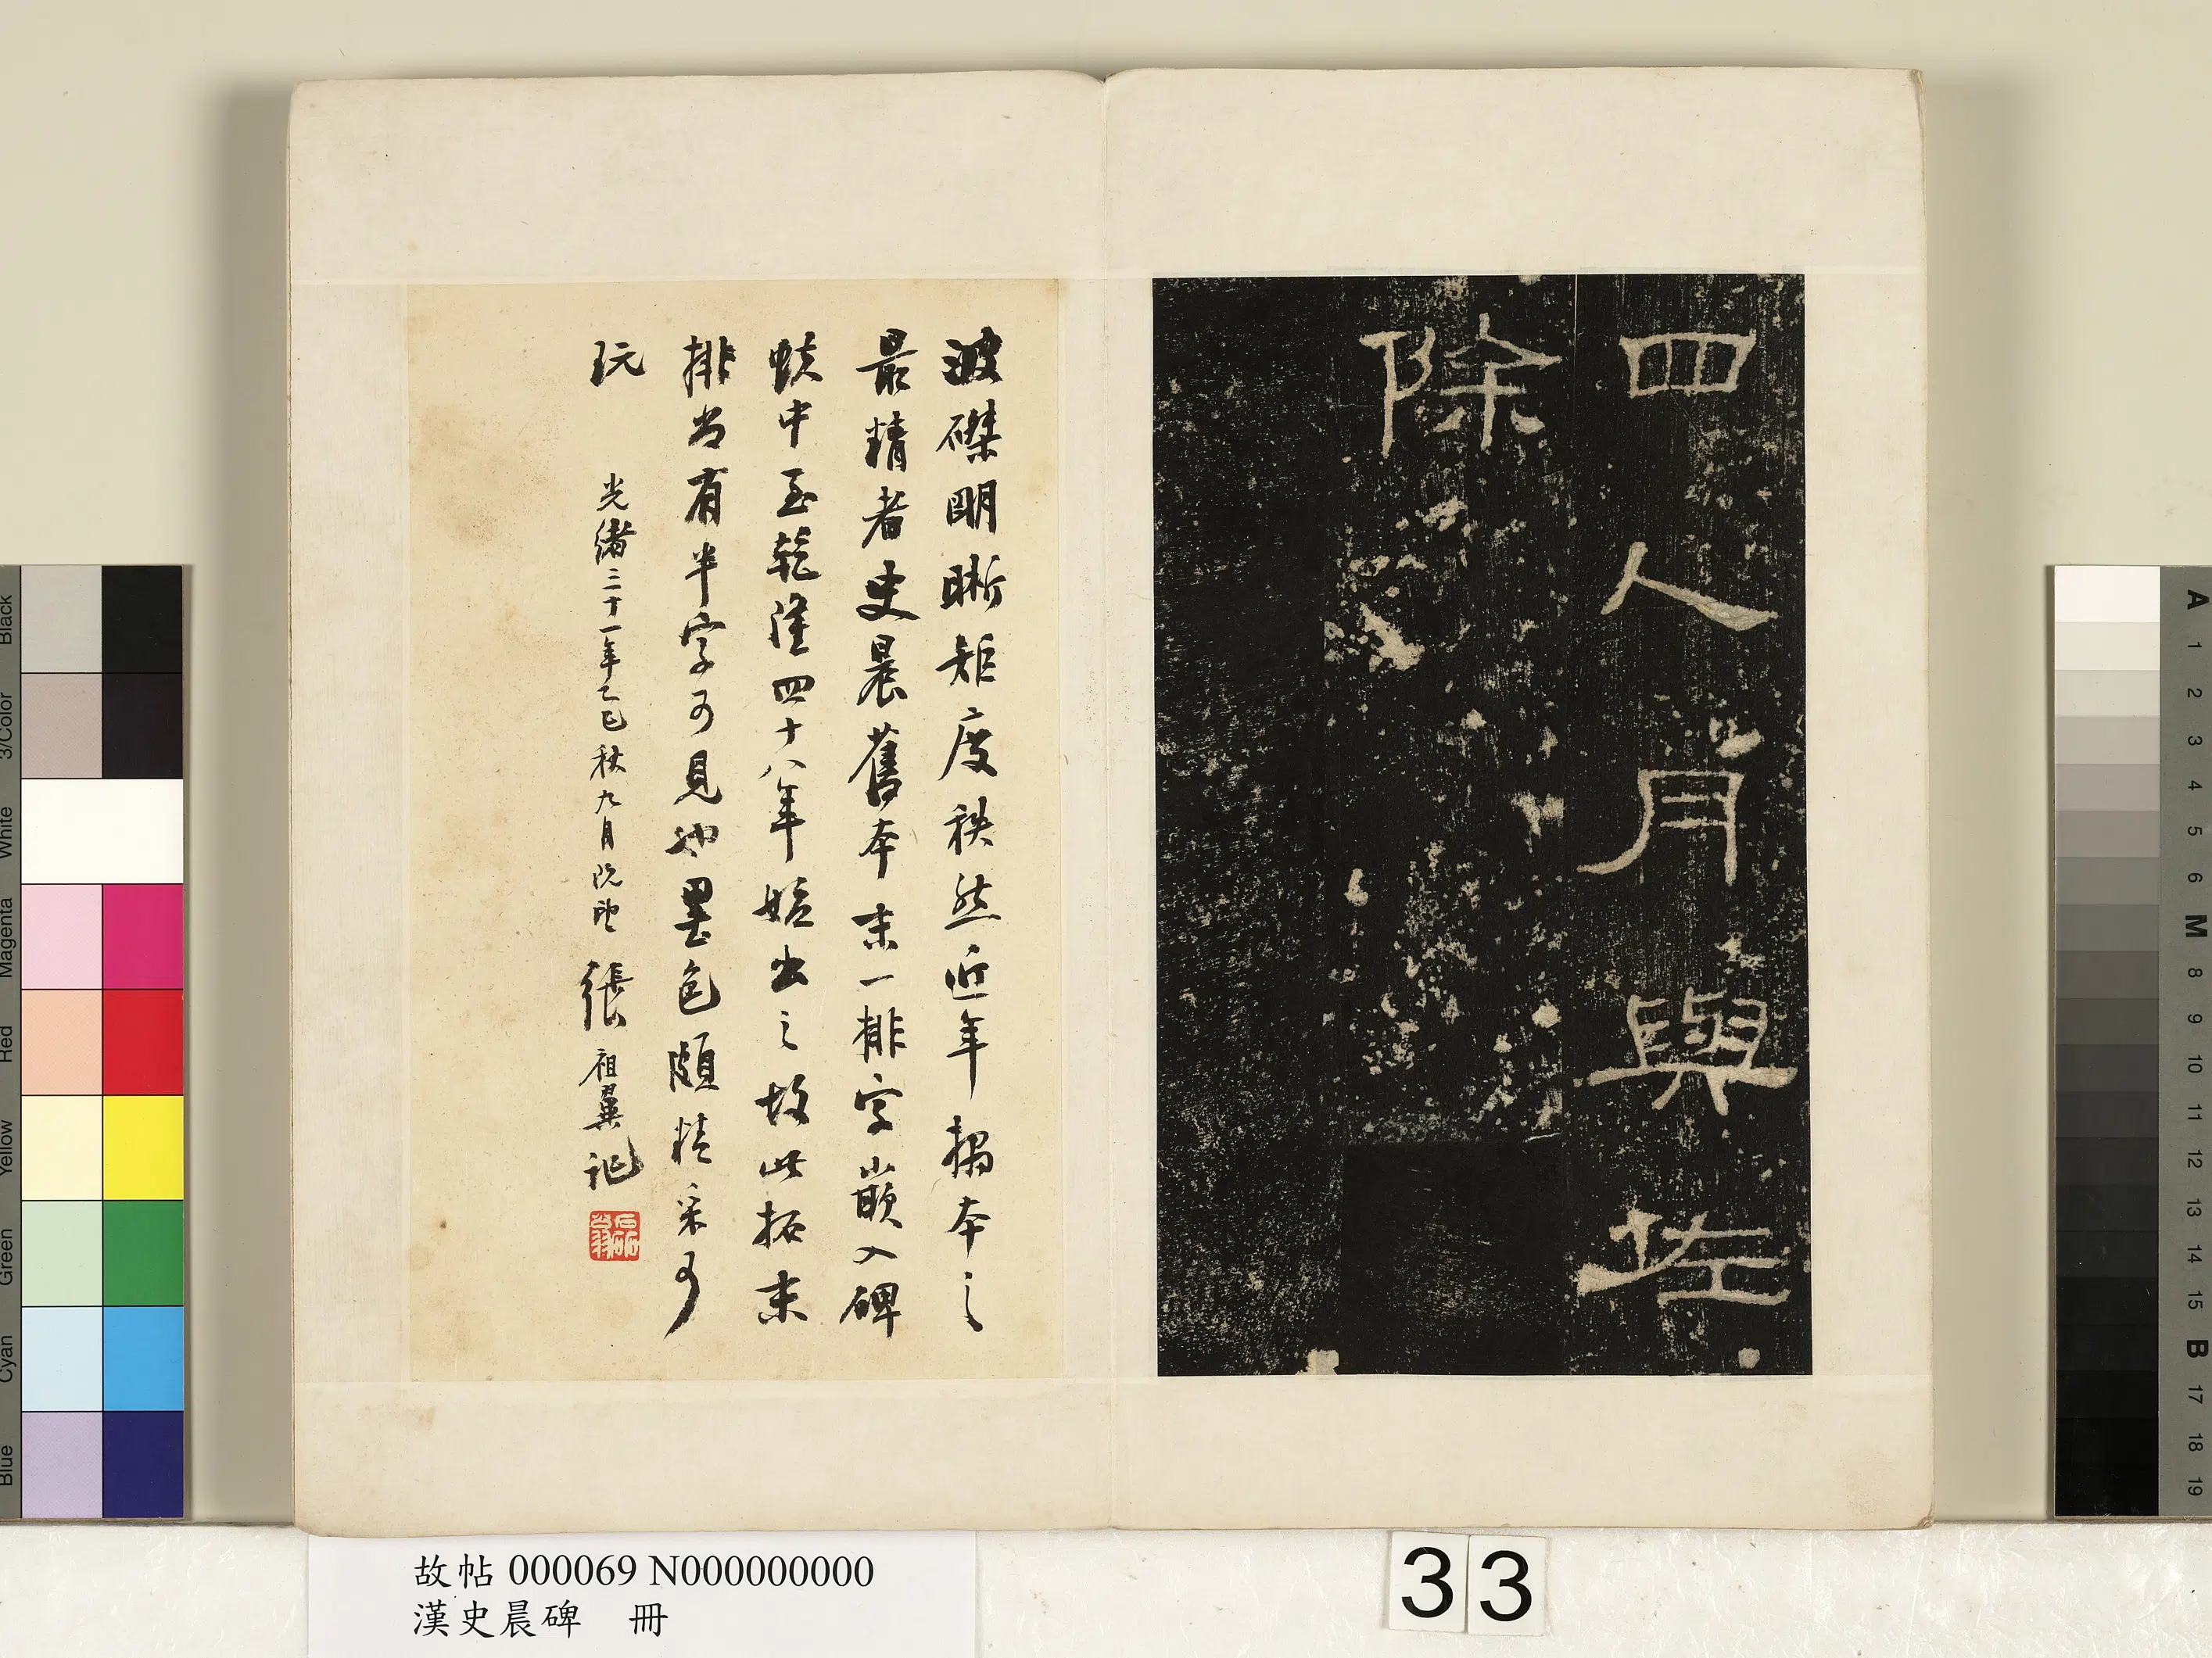 四人月與佐
除
波磔明晰矩度秩然近年搨本之
最精者史晨舊本末一排字嵌入碑
趺中至乾隆四十八年始出之故此拓末
排尚有半字可見也墨色頗精采可
玩
光緒三十一年乙巳秋九月
張祖翼記
故帖 000069 N000000000
漢史晨碑 冊
33
Black
3/Color
White
Magenta
Red
Yellow
Green
Cyan
Blue
A
1
2
3
4
5
6
M
8
9
10
11
12
13
14
15
B
17
18
19